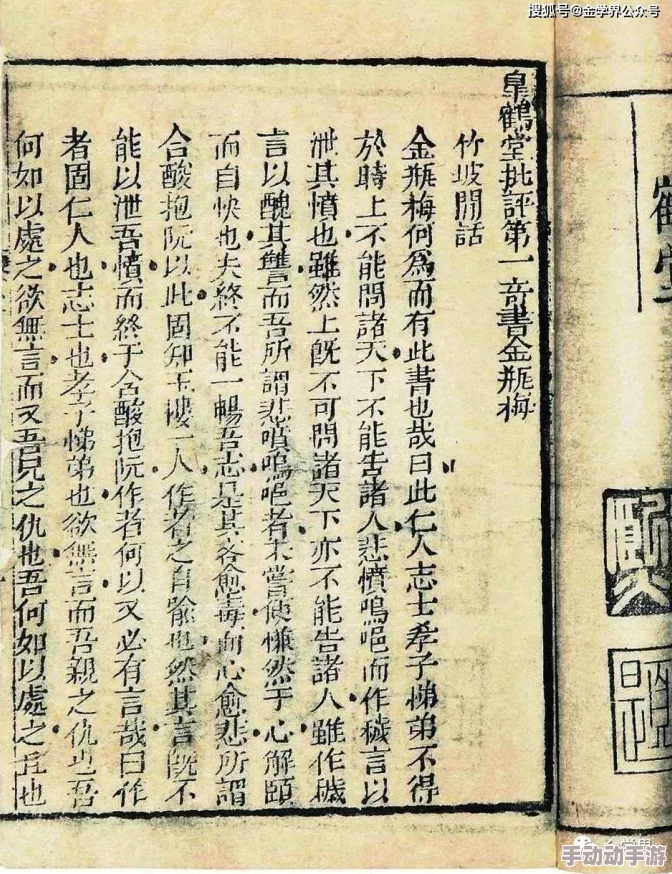 搜狐号@金学界公众号
皐鶴堂批評第一奇書金瓶梅
竹坡閒話
金瓶梅何爲而有此書也哉曰此仁人志士孝子悌弟不得
於時上不能問諸天下不能告諸人悲憤嗚唈而作穢言以
泄其憤也雖然上旣不可問諸天下亦不能告諸人雖作穢
言以醜其讐而吾所謂悲憤嗚唈者未嘗便慊然于心解頤
而自快也夫終不能一暢吾志是其言愈毒而心愈悲所謂
含酸抱阮以此固知玉樓一人作者之自喻也然其言旣不
能以泄吾憤而終于含酸抱阮作者何以又必有言哉曰作
者固仁人也志士也孝子悌弟也欲無言而吾親之仇也吾
何如以處之欲無言而又吾兄之仇也吾何如以處之且也
手动动手游